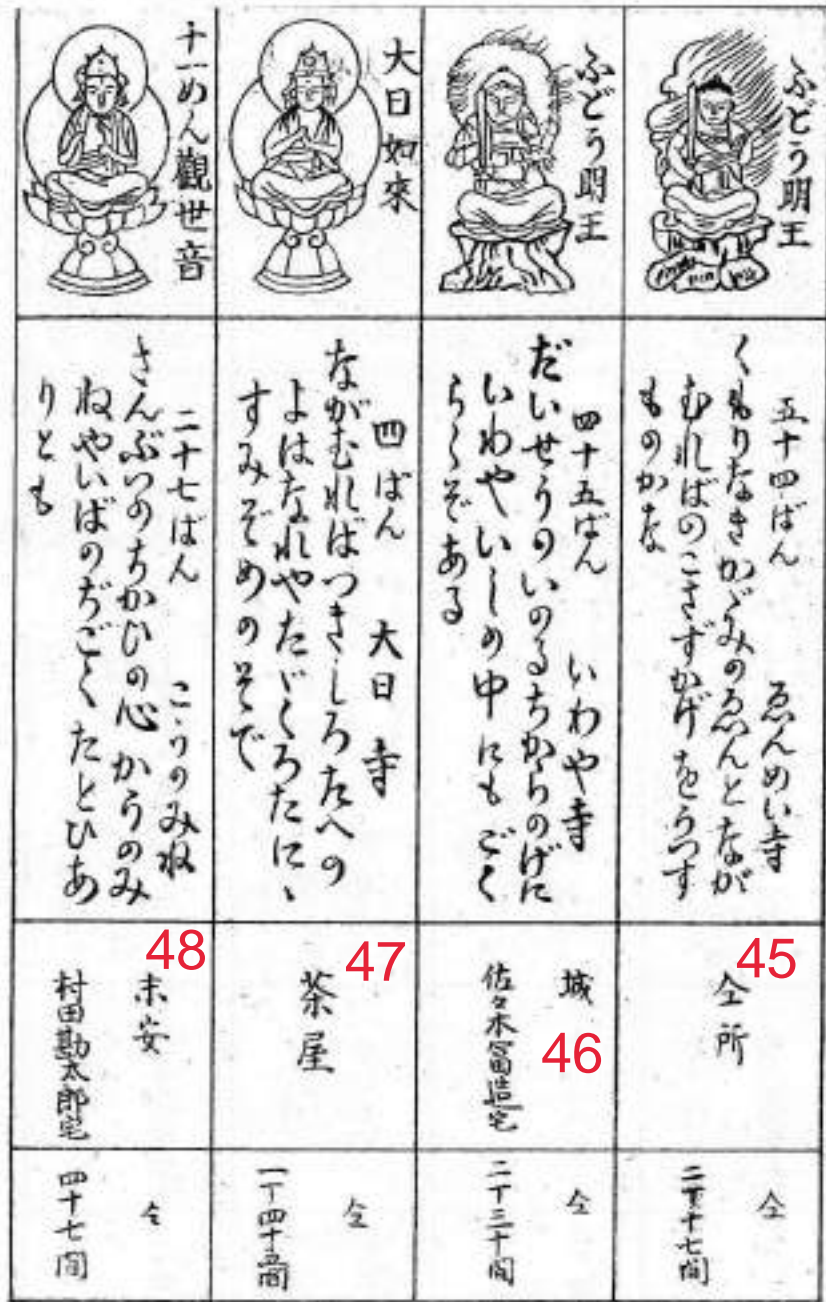 ふどう明王
五十四ばん ゑんめい寺
くもりなきかゞみのゑんとなが
むればのこさずかげをうつす
ものかな
45
仝所
仝
二丁十七間
ふどう明王
四十五ばん いわや寺
だいせうのいのるちからのげに
いわやいしの中にもごく
らくぞある
46
城
佐々木富造宅
仝
二丁三十間
大日如來
四ばん 大日寺
ながむればつきしろたへの
よはなれやたゞくろたにゝ
すみぞめのそで
47
茶屋
仝
一丁四十五間
十一めん觀世音
二十七ばん こうのみね
さんぶつのちかひの心かうのみ
ねやいばのぢごくたとひあ
りとも
48
末安
村田勘太郎宅
仝
四十七間